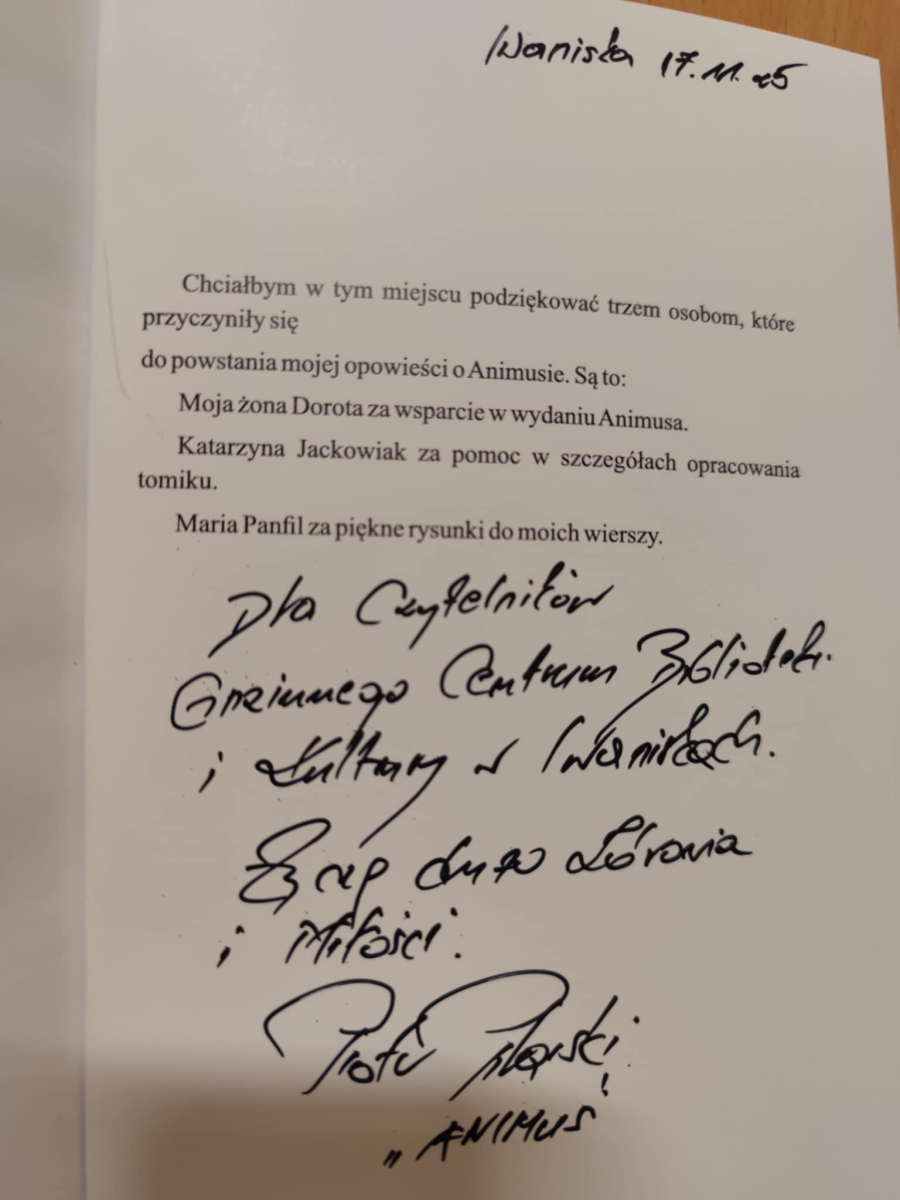 Iwaniska 17.11.25
Chciałbym w tym miejscu podziękować trzem osobom, które
przyczyniły się
do powstania mojej opowieści o Animusie. Są to:
Moja żona Dorota za wsparcie w wydaniu Animusa.
Katarzyna Jackowiak za pomoc w szczegółach opracowania
tomiku.
Maria Panfil za piękne rysunki do moich wierszy.
Dla Czytelników
Gminnego Centrum Bibliotek.
i Kultury w Iwaniskach.
Życzę dużo Zdrowia
i Miłości.
Piotr
„ANIMUS"